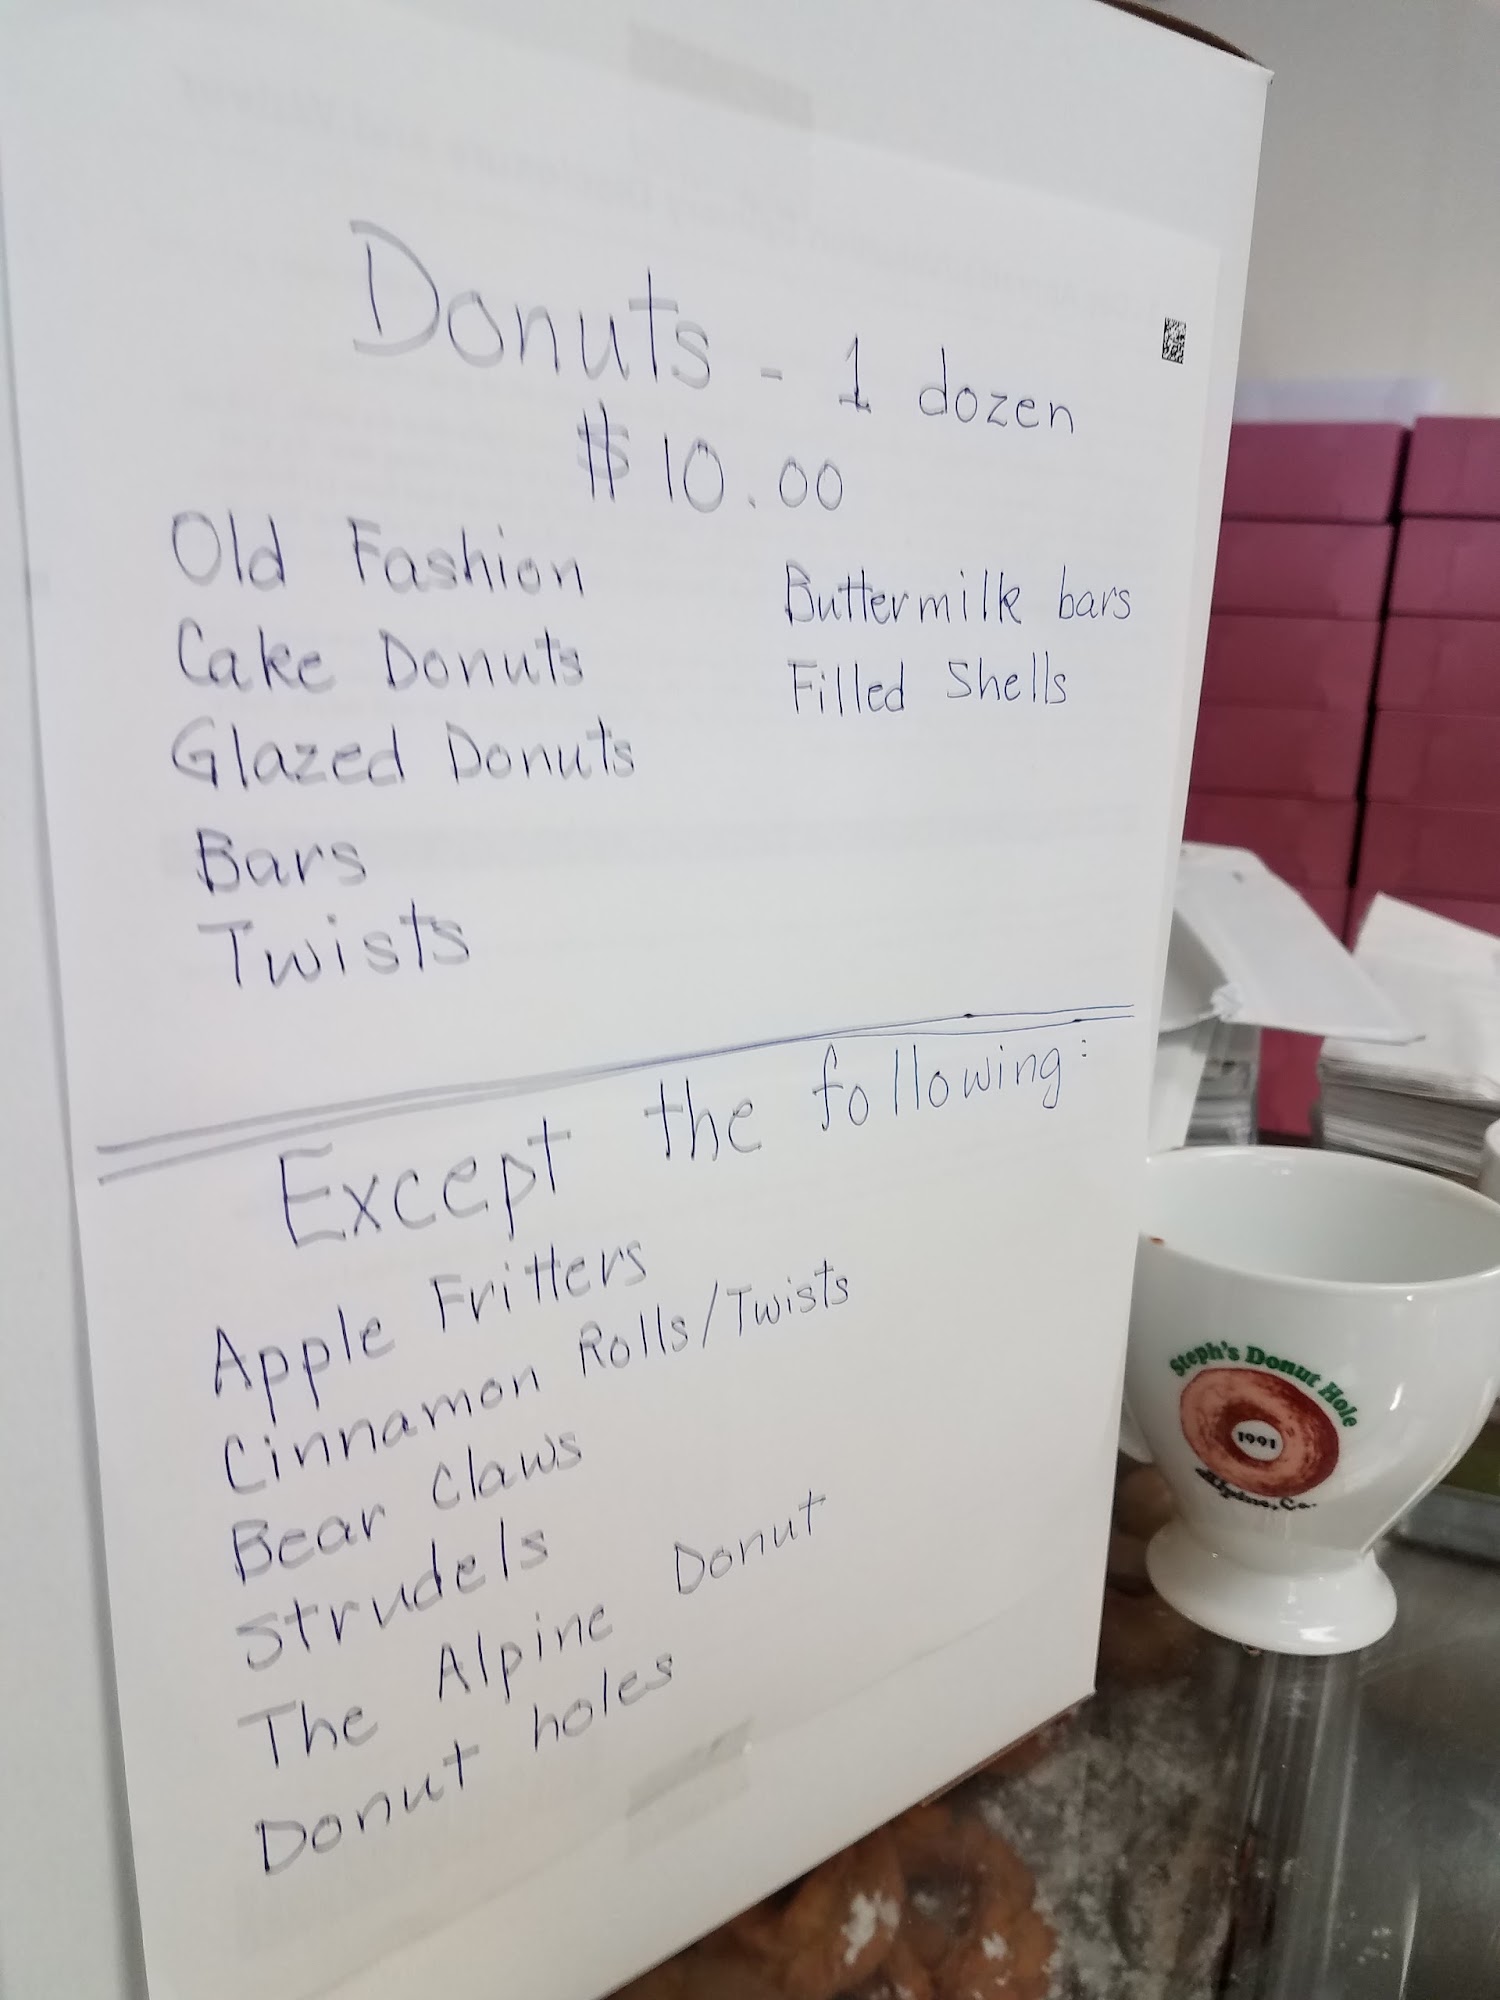 Donuts - 1 dozen
$10.00
Old Fashion
Cake Donuts
Glazed Donuts
Bars
Twists
Buttermilk bars
Filled Shells
Except the following:
Apple Fritters
Cinnamon Rolls/Twists
Bear Claws
Strudels
The Alpine Donut
Donut holes
Steph's Donut Hole
1991
Alpine, Ca.